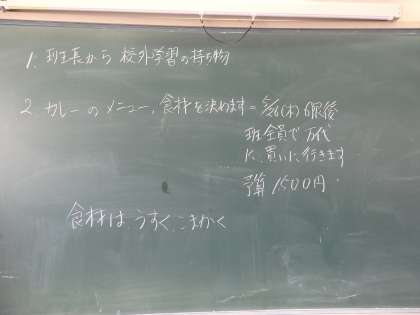 1. 班長から 校外学習の持ち物
2 カレーのメニュー、食材を決めます = 5/26(木) 6限後
班全員で 万代
に、買いに行きます
予算 1500円
食材は うすく、こまかく